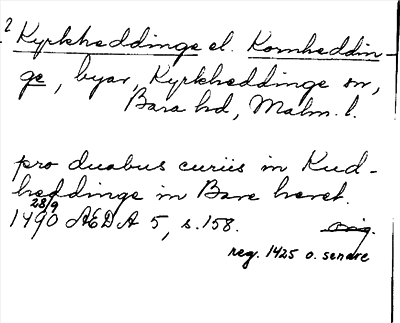 2 Kyrkheddinge el. Kornheddin-
ge, byar, Kyrkheddinge sn,
Bara hd, Malm. l.
pro duabus curiis in Kud-
heddinge in Bare heret.
28/9
1490 ÆDA 5, s. 158. orig.
reg. 1425 o. senare